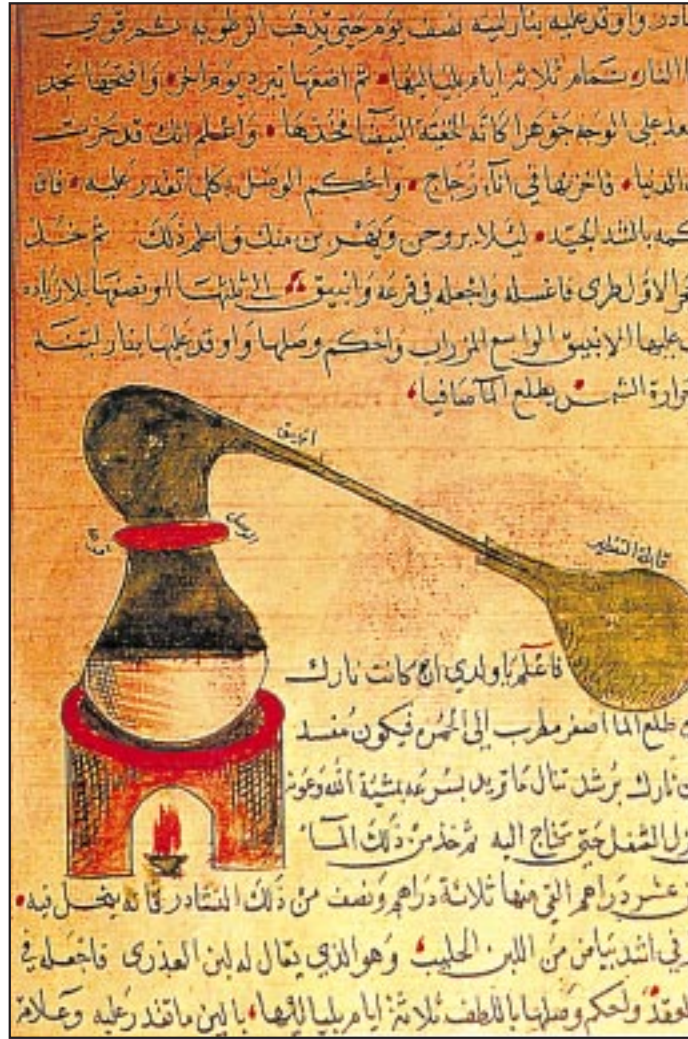 واوقد عليه بنار لينه نصف يوم حتى يذهب الرطوبه ثم قوى
النار تمام ثلاثه ايام بلياليها ثم اضعها تبرد يوم اخر وافتحها تجد
على الوجه جوهرا كانه الفضة البيضا فخذها واعلم انك قد حزت
الدنيا فاخزنها في انآء زجاج واحكم الوصل بكل ما تقدر عليه
بالشد الجيد ليلا يروحن ويهربن منك واعلم ذلك ثم خذ
الاول طرى فاغسله واجعله في قرعه وانبيق الى ثلثها او نصفها بلا زياده
عليها الانبيق الواسع المزراب واحكم وصلها واوقد عليها بنار لينة
حرارة الشمس يطلع المآ صافيا
انبيق
الوصل
قابلة التقطير
فاعلم يا ولدي ان كانت نارك
طلع الما اصفر مطرب إلى الحمره فيكون مفسد
نارك برشد تنال ما تريد بسرعه بمشية الله وعونه
الثفل حتى تحتاج اليه ثم خذ من ذلك المآء
عشر دراهم التي منها ثلاثة دراهم ونصف من ذلك النشادر فانه ينحل فيه
في اشد بياض من اللبن الحليب وهو الذي يقال له لبن العذرى فاجعله في
العقد واحكم وصلها باللطف ثلاثة ايام بلياليها بالين ما تقدر عليه وعلامة